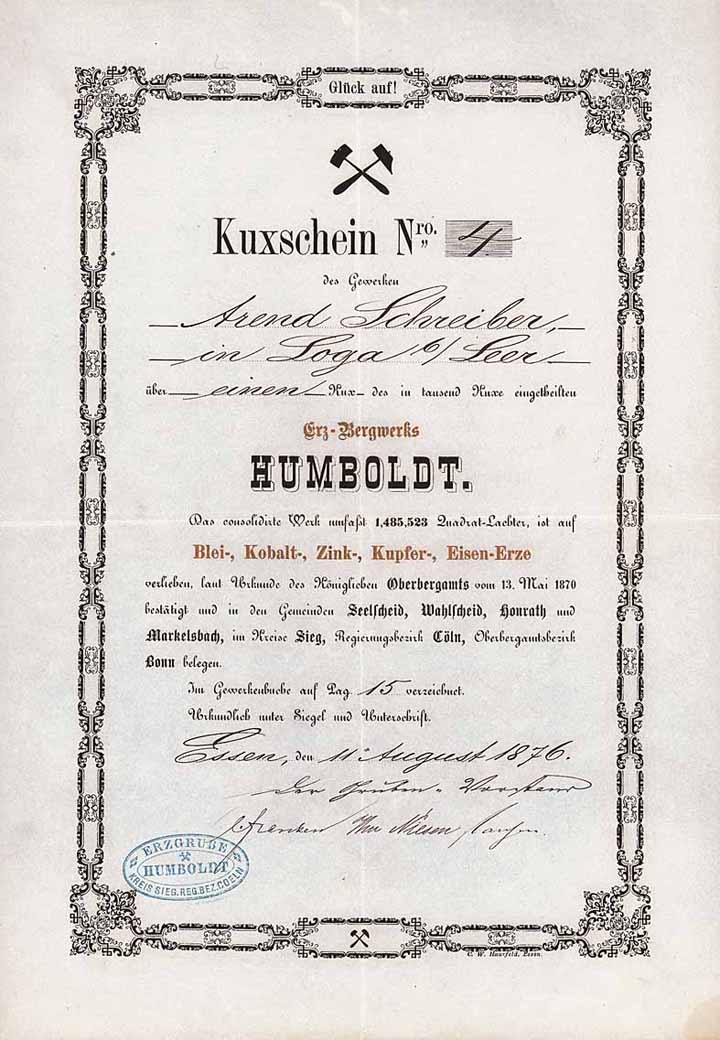 Glück auf!
Kuxschein Nro. 4.
des Gewerken
Arend Schreiber,
in Loga b/ Leer
über einen Kux des in tausend Kuxe eingetheilten
Erz-Bergwerks
HUMBOLDT.
Das consolidirte Werk umfaßt 1,485,523 Quadrat-Lachter, ist auf
Blei-, Kobalt-, Zink-, Kupfer-, Eisen-Erze
verliehen, laut Urkunde des Königlichen Oberbergamts vom 13. Mai 1870
bestätigt und in den Gemeinden Seelscheid, Wahlscheid, Honrath und
Markelsbach, im Kreise Sieg, Regierungsbezirk Cöln, Oberbergamtsbezirk
Bonn belegen.
Im Gewerkenbuche auf Pag. 15 verzeichnet.
Urkundlich unter Siegel und Unterschrift.
Essen, den 11. August 1876.
Der Gruben-Vorstand
ERZGRUBE
HUMBOLDT
KREIS SIEG. REG. BEZ. COELN